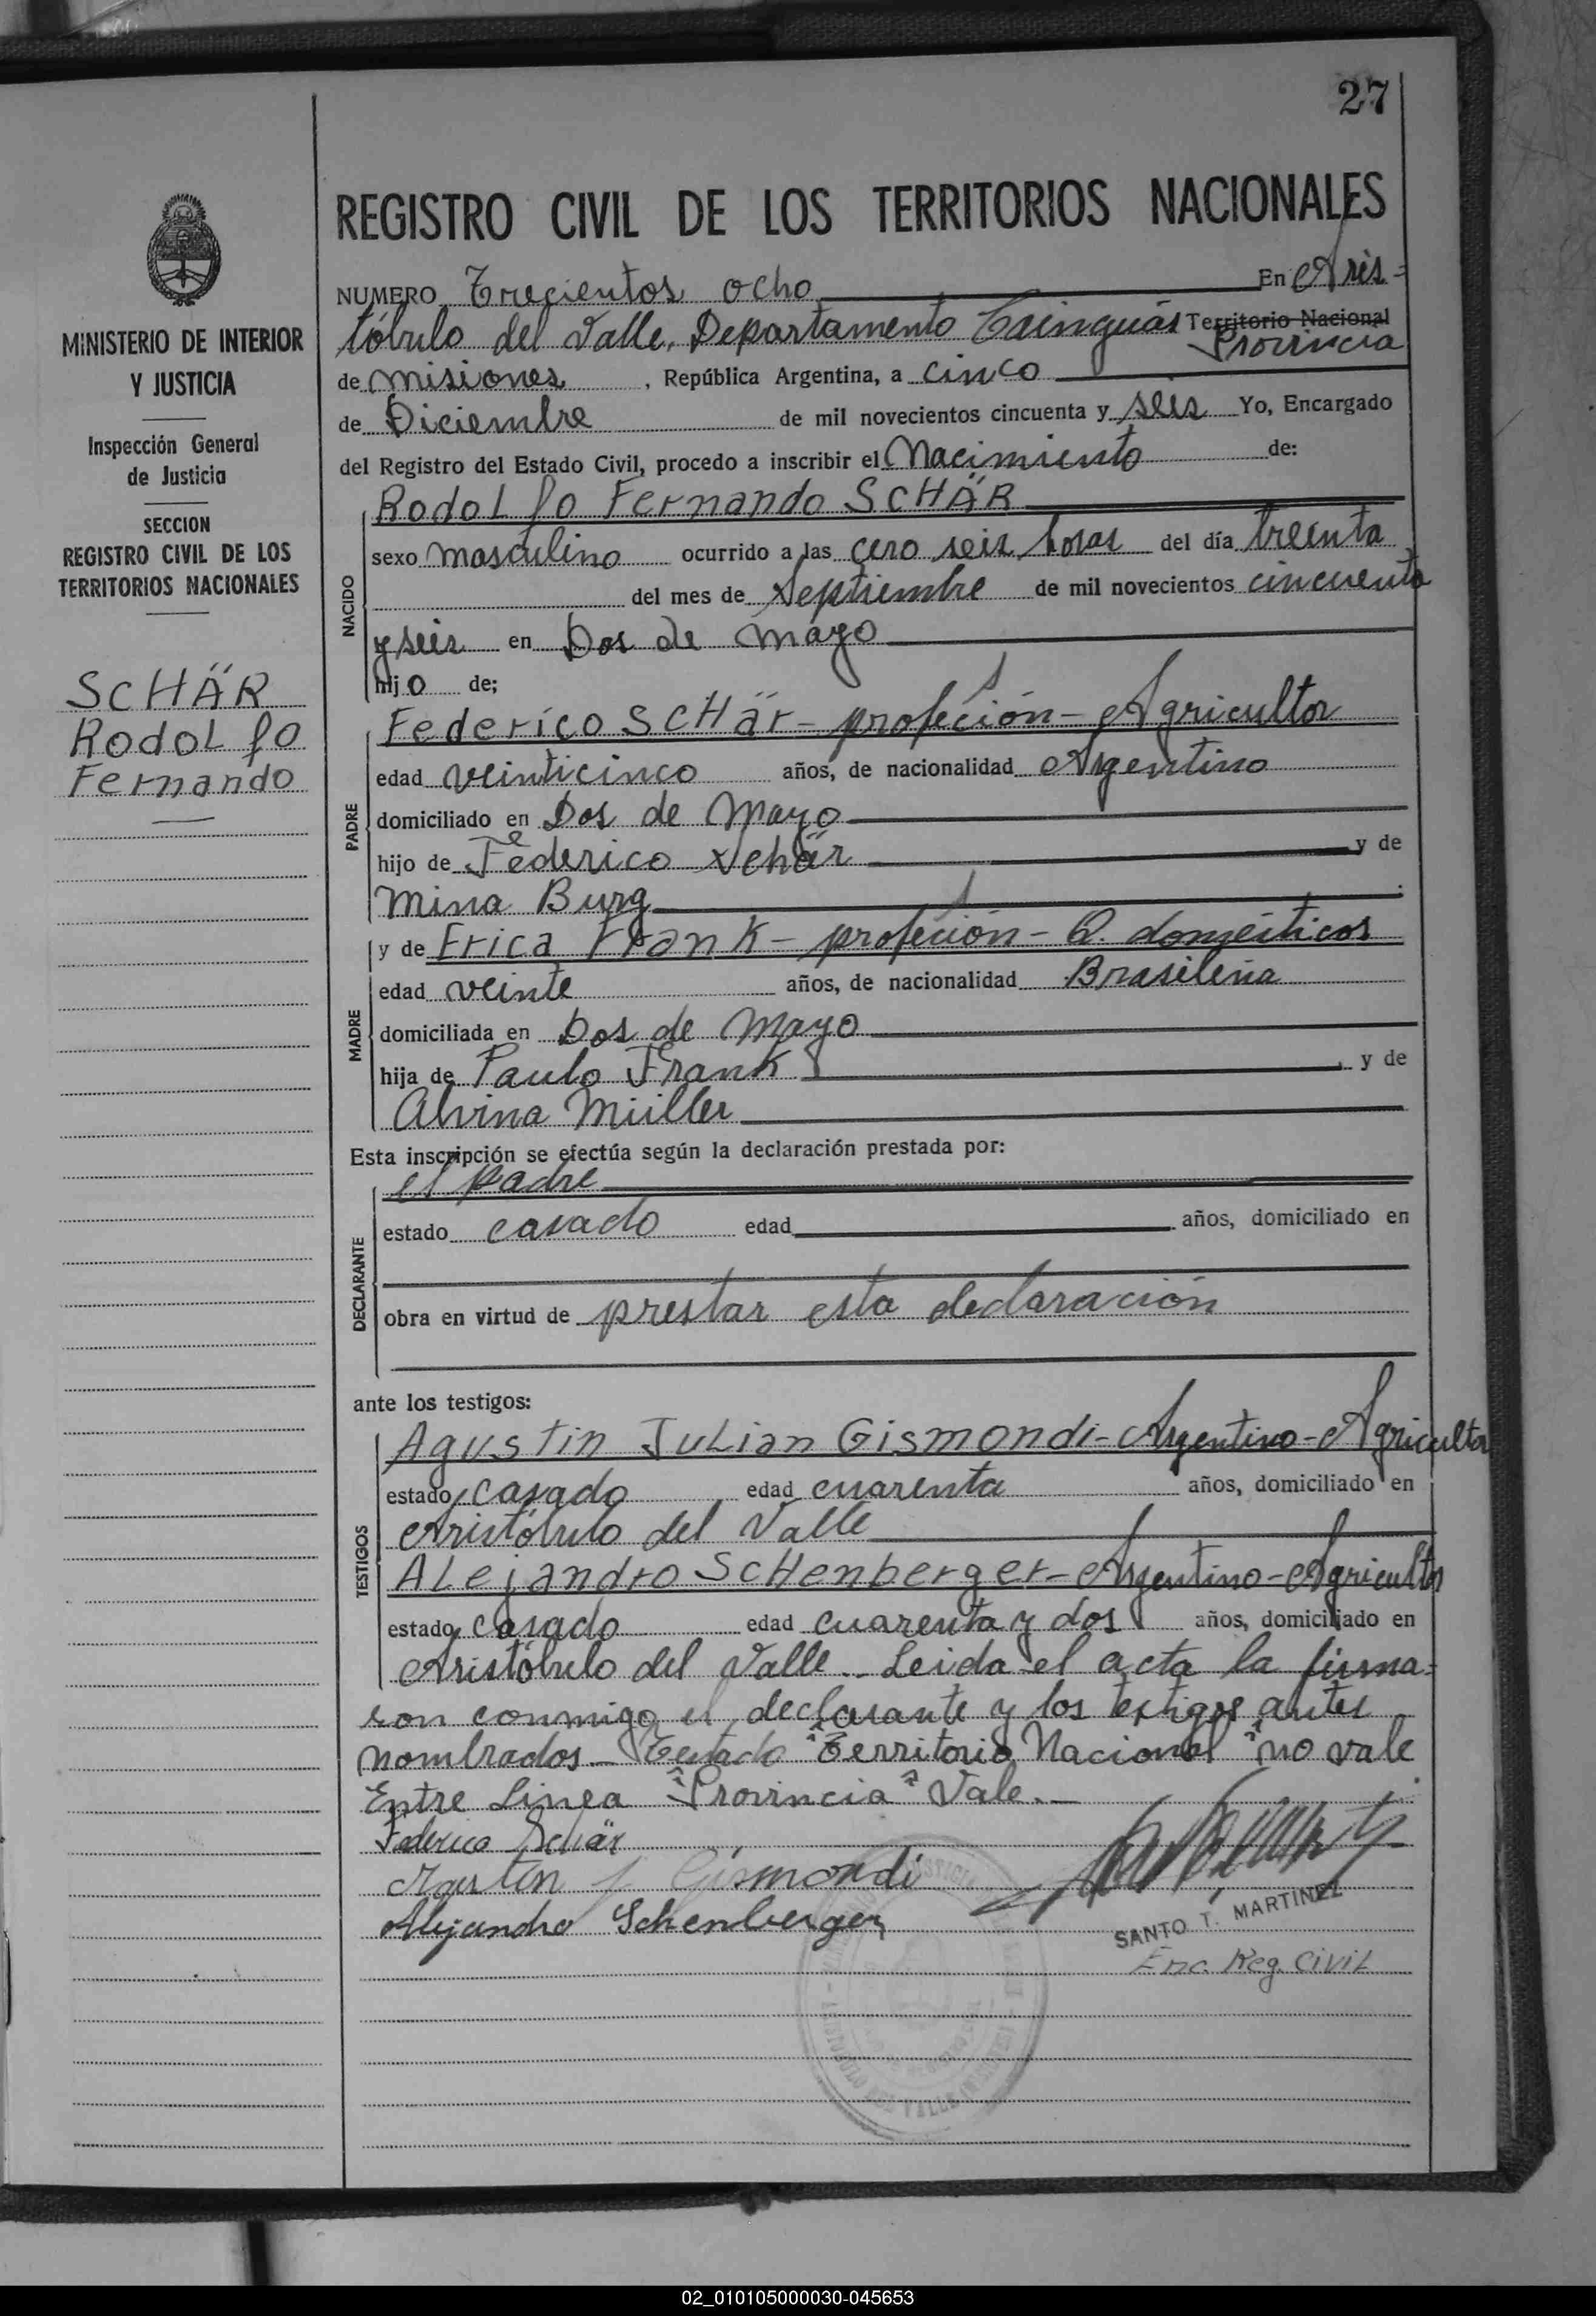 27
REGISTRO CIVIL DE LOS TERRITORIOS NACIONALES
MINISTERIO DE INTERIOR
Y JUSTICIA
Inspección General
de Justicia
SECCION
REGISTRO CIVIL DE LOS
TERRITORIOS NACIONALES
SCHÄR
Rodolfo
Fernando
NUMERO Trecientos ocho En Aris=
tóbulo del Valle, Departamento Cainguás Territorio Nacional
Provincia
de Misiones, República Argentina, a cinco
de Diciembre de mil novecientos cincuenta y seis Yo, Encargado
del Registro del Estado Civil, procedo a inscribir el Nacimiento de:
NACIDO
Rodolfo Fernando SCHÄR
sexo masculino ocurrido a las cero seis horas del día treinta
del mes de Septiembre de mil novecientos cincuenta
y seis en Dos de Mayo
hijo de;
PADRE
Federico SCHär - profeción - Agricultor
edad veinticinco años, de nacionalidad Argentino
domiciliado en Dos de Mayo
hijo de Federico Schär y de
Mina Burg
MADRE
y de Erica Frank - profeción - Q. doméiticos
edad veinte años, de nacionalidad Brasileña
domiciliada en Dos de Mayo
hija de Paulo Frank y de
Alvina Müller
Esta inscripción se efectúa según la declaración prestada por:
DECLARANTE
el padre
estado casado edad años, domiciliado en
obra en virtud de prestar esta declaración
ante los testigos:
TESTIGOS
Agustin Julian Gismondi - Argentino - Agricultor
estado casado edad cuarenta años, domiciliado en
Aristóbulo del Valle
Alejandro SCHenberger - Argentino - Agricultor
estado casado edad cuarenta y dos años, domiciliado en
Aristóbulo del Valle. Leida el acta la firma=
ron conmigo el declarante y los testigos antes
nombrados - Testado "Territorio Nacional" no vale
Entre Linea "Provincia" Vale. -
Federico Schär
Agustin J. Gismondi
Alejandro Schenberger
SANTO T. MARTINEZ
Enc. Reg. Civil
02_010105000030-045653